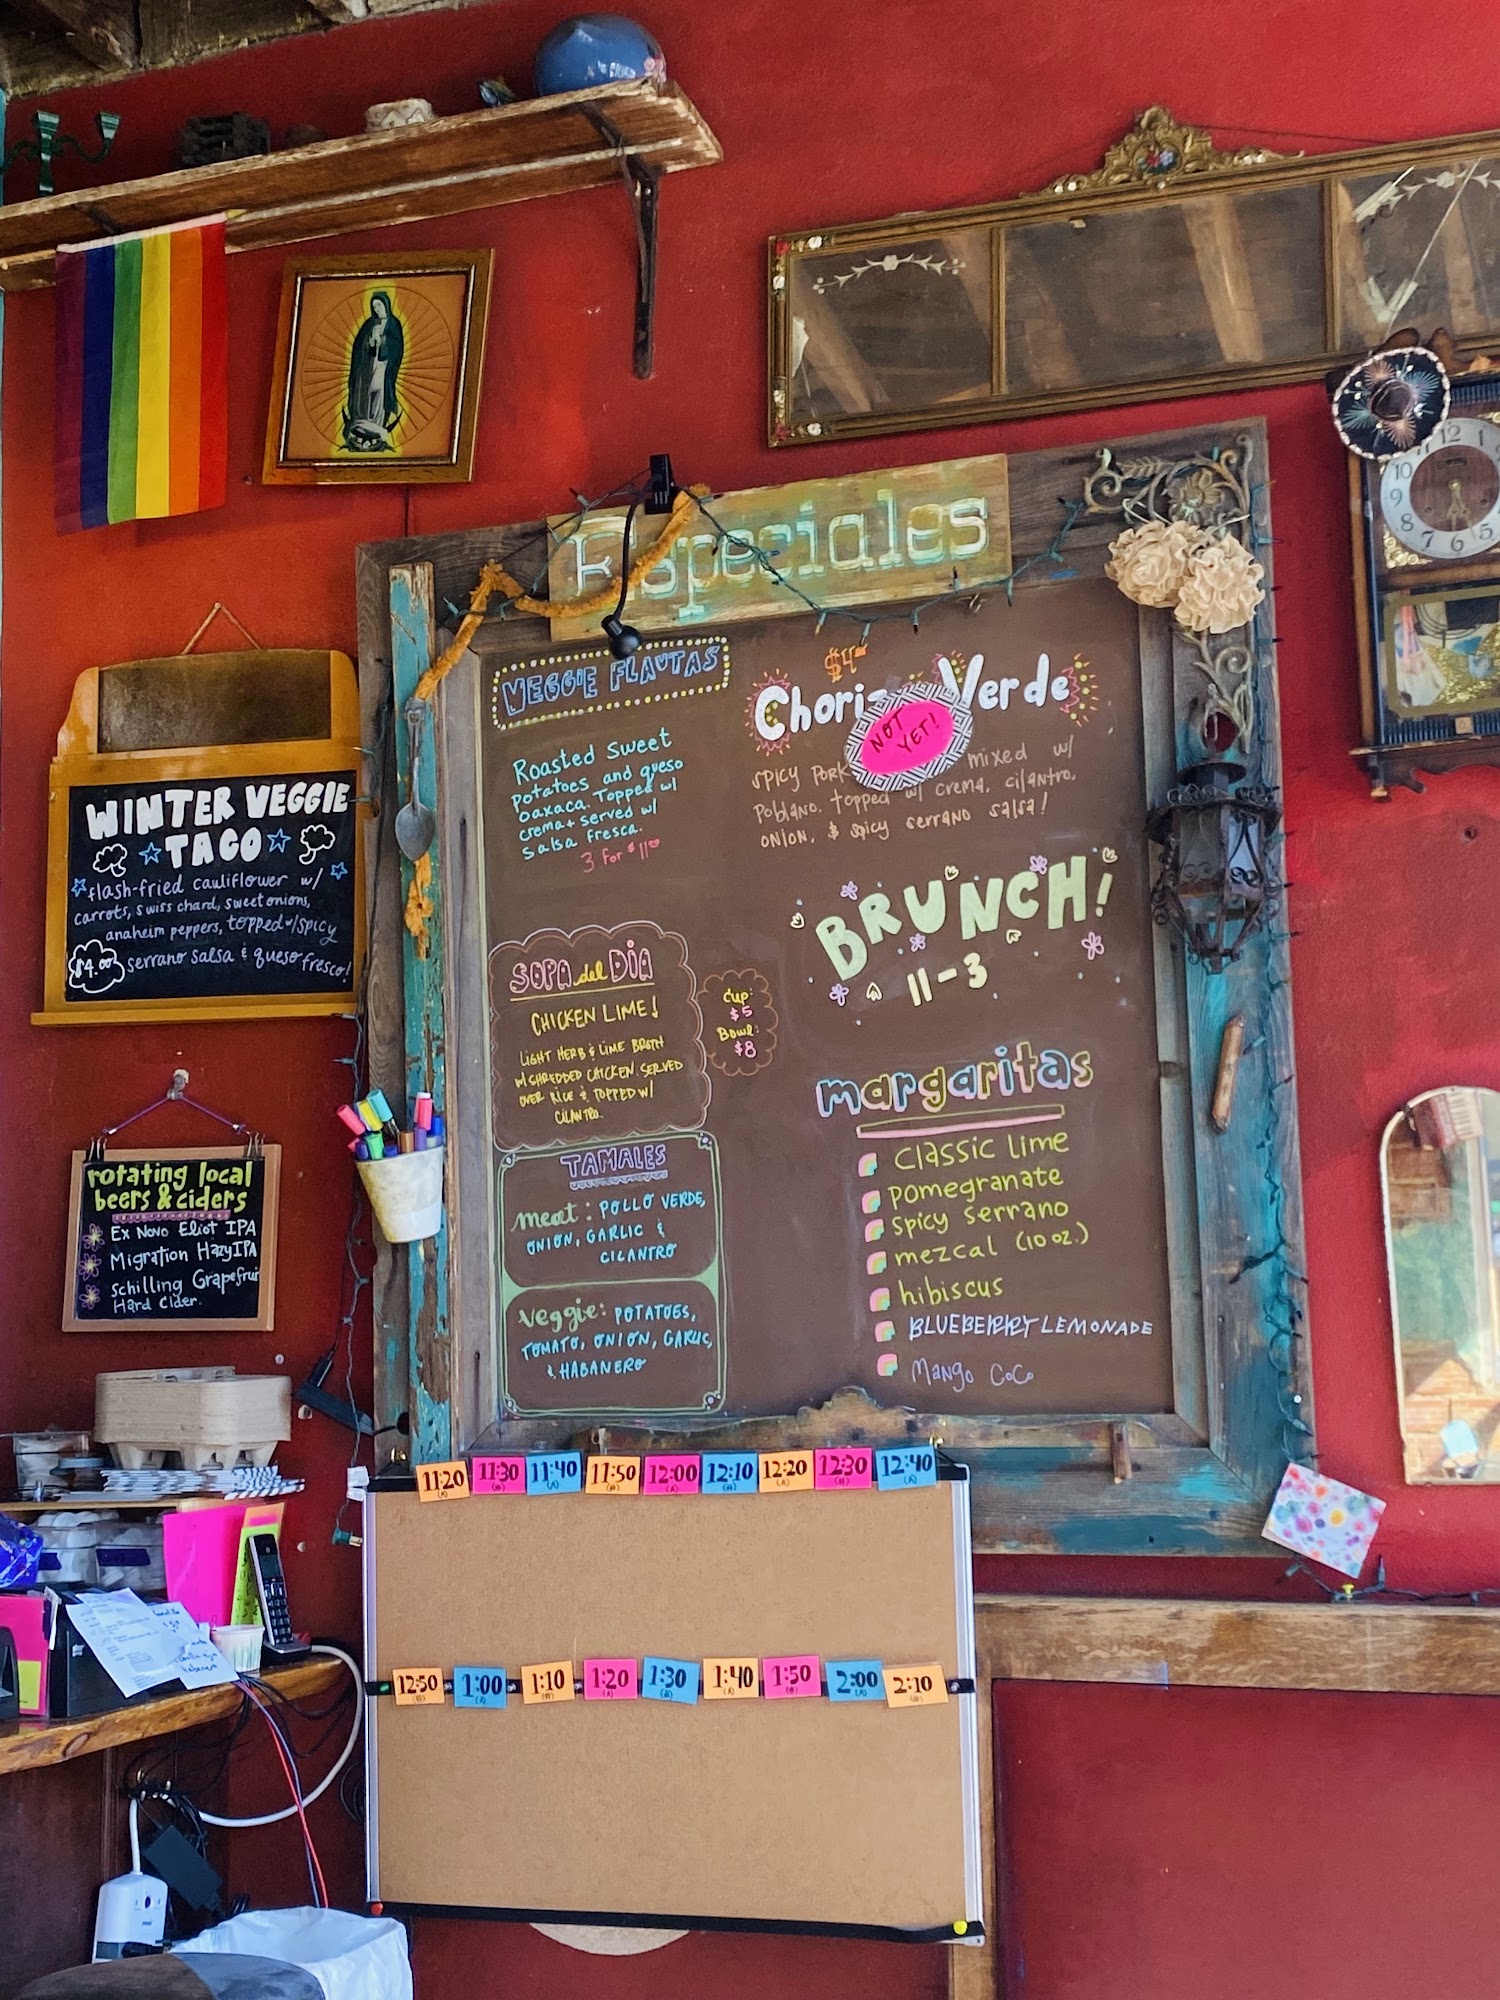 Especiales
VEGGIE FLAUTAS
Roasted Sweet
Potatoes and queso
oaxaca. Topped w/
crema + served w/
salsa fresca.
3 for $11
$4
Chorizo Verde
NOT
YET!
spicy pork mixed w/
poblano, topped w/ crema, cilantro,
onion, & spicy serrano salsa!
BRUNCH!
11-3
SOPA del DIA
CHICKEN LIME!
LIGHT HERB & LIME BROTH
W/ SHREDDED CHICKEN SERVED
OVER RICE & TOPPED W/
CILANTRO.
Cup:
$5
Bowl:
$8
TAMALES
meat: POLLO VERDE,
ONION, GARLIC &
CILANTRO
veggie: POTATOES,
TOMATO, ONION, GARLIC,
& HABANERO
margaritas
classic lime
pomegranate
spicy serrano
mezcal (10 oz.)
hibiscus
BLUEBERRY LEMONADE
Mango CoCo
WINTER VEGGIE
TACO
flash-fried cauliflower w/
carrots, swiss chard, sweet onions,
anaheim peppers, topped w/ spicy
$4.00 serrano salsa & queso fresco!
rotating local
beers & ciders
Ex Novo Eliot IPA
Migration Hazy IPA
Schilling Grapefruit
Hard Cider.
12
1
10
9
8
7
6
5
11:20 11:30 11:40 11:50 12:00 12:10 12:20 12:30 12:40
12:50 1:00 1:10 1:20 1:30 1:40 1:50 2:00 2:10